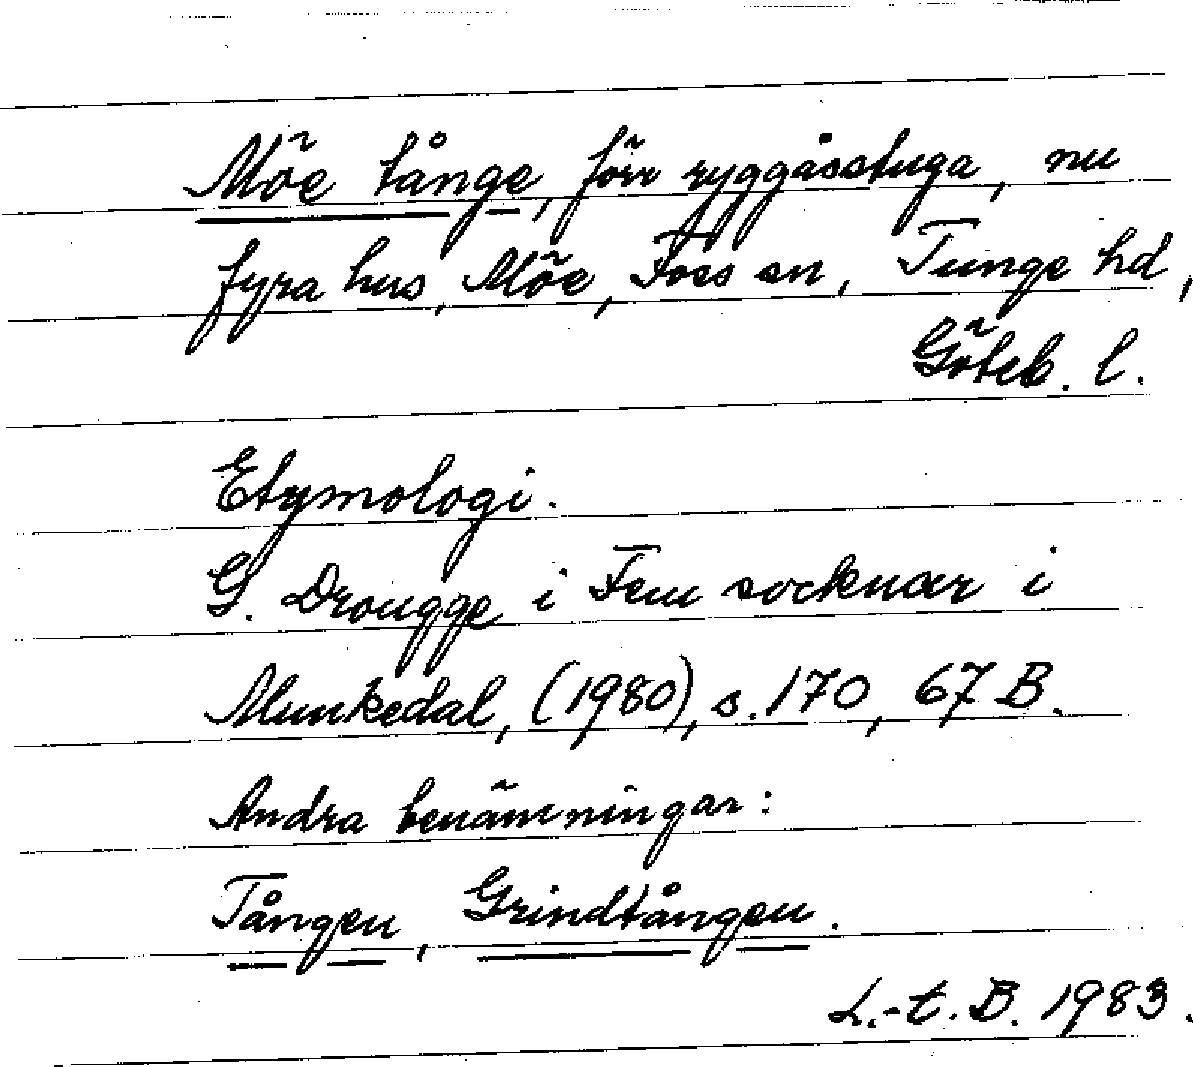 Möe tånge, förr ryggåsstuga, nu
fyra hus, Möe, Foss sn, Tunge hd,
Göteb. l.
Etymologi.
G. Drougge i Fem socknar i
Munkedal, (1980), s. 170, 67 B.
Andra benämningar:
Tången, Grindtången.
L.-t. B. 1983.